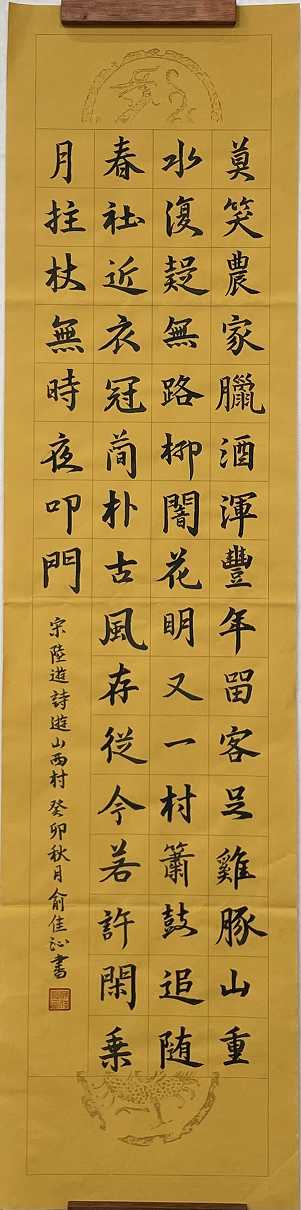 莫笑農家臘酒渾豐年留客足雞豚山重
水復疑無路柳闇花明又一村簫鼓追随
春社近衣冠简朴古風存從今若許閑乗
月拄杖無時夜叩門
宗陸遊詩遊山西村癸卯秋月俞佳沁書